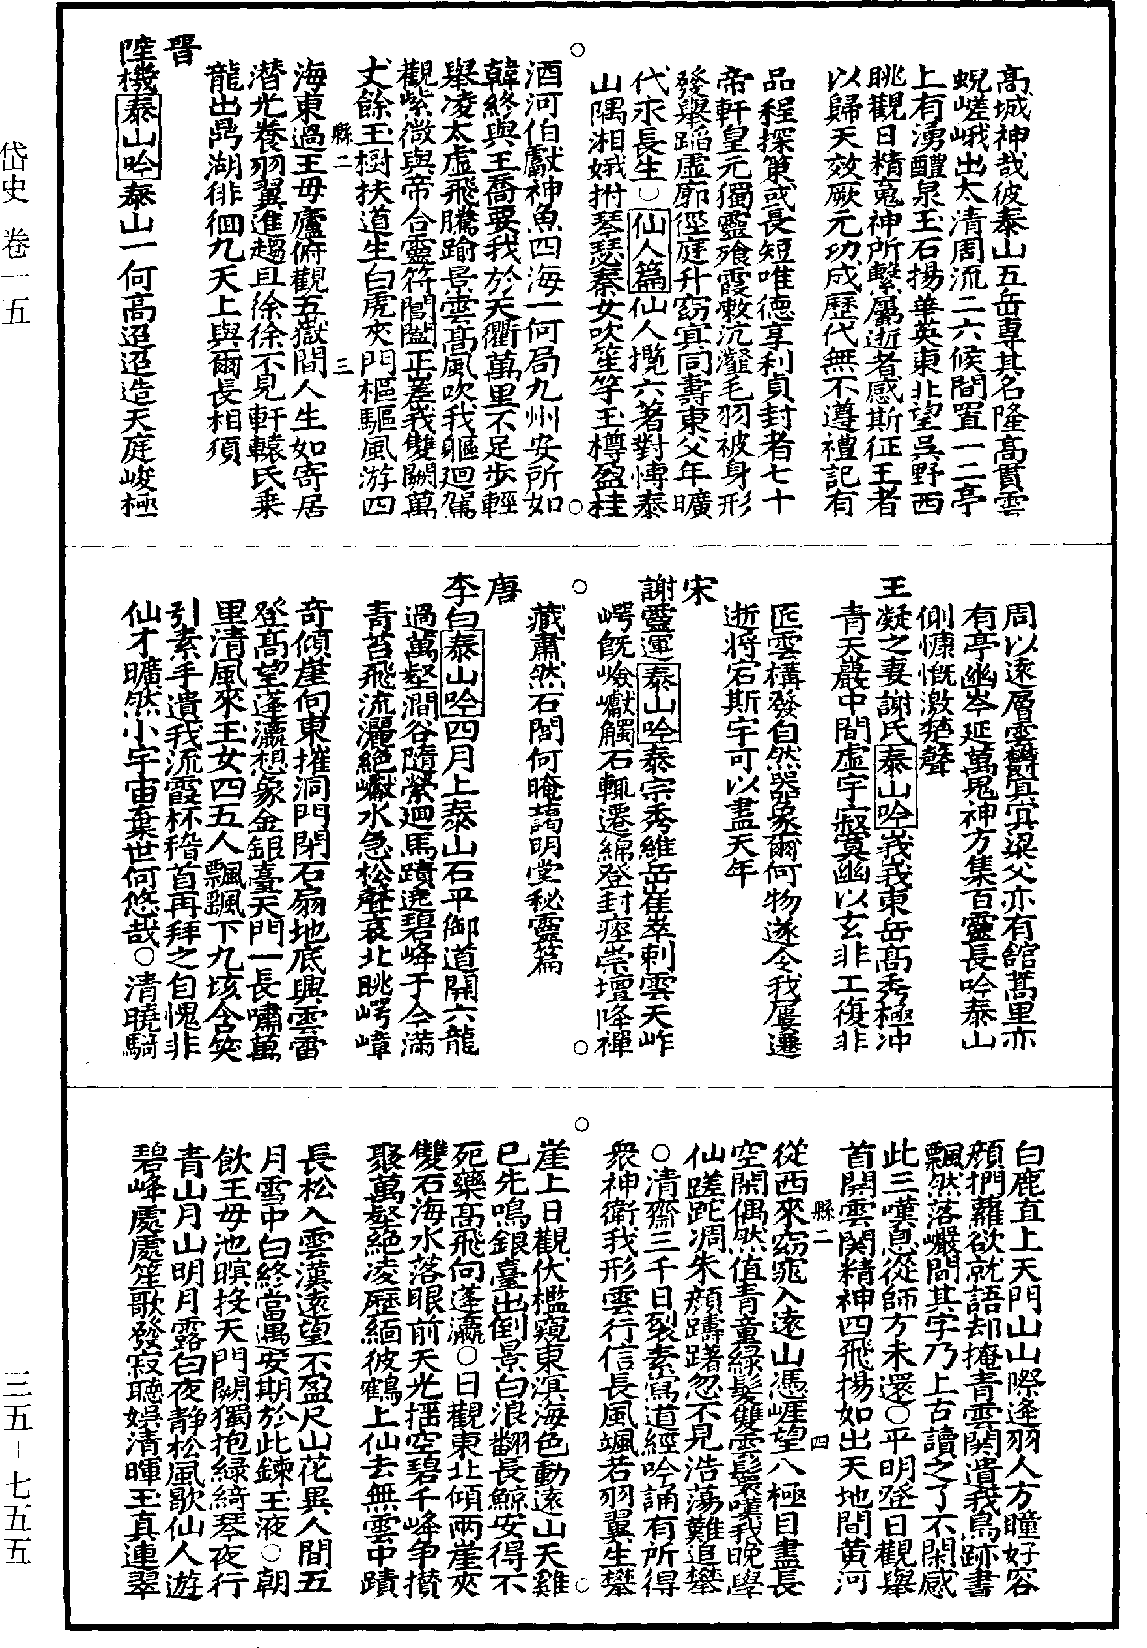 岱史 卷一五
高城神哉彼泰山五岳專其名隆高貫雲
蜺嵯峨出太清周流二六候間置一二亭
上有湧醴泉玉石揚華英東北望吳野西
眺觀日精䰟神所繫屬逝者感斯征王者
以歸天效厥元功成歷代無不遵禮記有
品程探䇿或長短唯德享利貞封者七十
帝軒皇元獨靈飱霞漱沆瀣毛羽被身形
發舉蹈虛廓徑庭升窈冥同壽東父年曠
代永長生○仙人篇仙人攬六著對博泰
山隅湘娥拊琴瑟秦女吹笙竽玉樽盈桂
酒河伯獻神魚四海一何局九州安所如
韓終與王喬要我於天衢萬里不足步輕
舉凌太虛飛騰踰景雲高風吹我軀迴駕
觀紫微與帝合靈符閶闔正嵳峩雙闕萬
丈餘玉樹扶道生白虎夾門樞驅風游四
縣二 三
海東過王母廬俯觀五嶽間人生如寄居
潛光養羽翼進趨且徐徐不見軒轅氏乘
龍出鼎湖徘徊九天上與爾長相須
晉
陸機泰山吟泰山一何高迢迢造天庭峻極
周以遠層雲鬱冥冥梁父亦有館蒿里亦
有亭幽岑延萬鬼神方集百靈長吟泰山
側慷慨激楚聲
王凝之妻謝氏泰山吟峩峩東岳高秀極冲
青天巖中間虛宇寂寞幽以玄非工復非
匠雲構發自然器象爾何物遂令我屢遷
逝將宕斯宇可以盡天年
宋
謝靈運泰山吟泰宗秀維岳崔崒刺雲天岞
崿旣嶮巇觸石輒遷綿登封瘞崇壇降禪
藏肅然石閭何晻藹明堂秘靈篇
唐
李白泰山吟四月上泰山石平御道開六龍
過萬壑澗谷隨縈迴馬蹟遶碧峰于今滿
青苔飛流灑絕巘水急松聲哀北眺崿嶂
奇傾崖向東摧洞門閉石扇地底興雲雷
登高望蓬瀛想象金銀臺天門一長嘯萬
里清風來玉女四五人飄颻下九垓含笑
引素手遺我流霞杯稽首再拜之自愧非
仙才曠然小宇宙棄世何悠哉○清曉騎
白鹿直上天門山山際逢羽人方瞳好容
顏捫蘿欲就語却掩青雲関遺我鳥跡書
飄然落巖間其字乃上古讀之了不閑感
此三嘆息從師方未還○平明登日觀舉
首開雲関精神四飛揚如出天地間黃河
縣二 四
從西來窈窕入遠山憑崕望八極目盡長
空閑偶然值青童綠髮雙雲鬟嘆我晚學
仙蹉跎凋朱顏躊躇忽不見浩蕩難追攀
○清齋三千日裂素寫道經吟誦有所得
衆神衛我形雲行信長風颯若羽翼生攀
崖上日觀伏檻窺東溟海色動遠山天雞
已先鳴銀臺出倒景白浪翻長鯨安得不
死藥高飛向蓬瀛○日觀東北傾兩崖夾
雙石海水落眼前天光揺空碧千峰争攢
聚萬壑絕凌歷緬彼鶴上仙去無雲中蹟
長松入雲漢遠望不盈尺山花異人間五
月雪中白終當遇安期於此鍊玉液○朝
飲王母池暝投天門闕獨抱綠綺琴夜行
青山月山明月露白夜静松風歇仙人遊
碧峰處處笙歌發寂聽娯清暉玉真連翠
三五－七五五